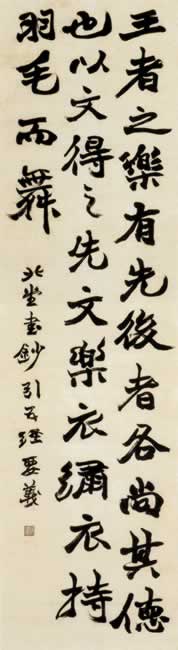 王者之樂有先後者各尚其德
也以文得之先文樂衣繡衣持
羽毛而舞
北堂書鈔引五經要義